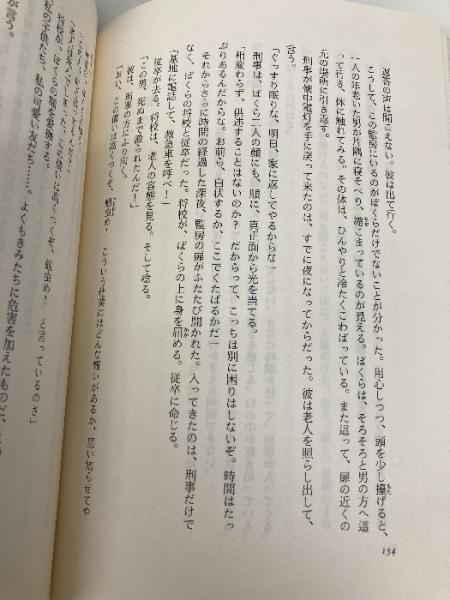 返答の声は聞こえない。彼は出て行く。
こうして、この監房にいるのがぼくらだけでないことが分かった。用心しつつ、頭を少し擡げると、
一人の年老いた男が片隅に寝そべり、縮こまっているのが見える。ぼくらは、そろそろと男の方へ這
って行き、体に触れてみる。その体は、ひんやりと冷たくこわばっている。また這って、扉の近くの
元の場所に引き返す。
刑事が懐中電灯を手に戻って来たのは、すでに夜になってからだった。彼は老人を照らし出して、
言う。
「ぐっすり眠りな、明日、家に返してやるからな」
刑事は、ぼくら二人の顔にも、順に、真正面から光を当てる。
「相変わらず、供述することはないのか? だからって、こっちは別に困りはしないぞ。時間はたっ
ぷりあるんだからな。お前ら、白状するか、ここでくたばるかだ」
それからさらに時間の経過した深夜、監房の扉がふたたび開かれた。入ってきたのは、刑事だけで
なく、ぼくらの将校と従卒だった。将校が、ぼくらの上に身を屈める。従卒に命じる。
「基地に電話して、救急車を呼べ!」
従卒が去る。将校は、老人の容態を見る。そして唸る。
「この男、死ぬまで殴られたんだ!」
彼は、刑事の方にふり向く。
「おい、この償いは高くつくぞ、蛆虫め! こういう仕業にはどんな報いがあるか、思い知らせてや
つくぞ、蛆虫め! と言っているのさ」
将校が、ぼくらの顔を
私の子供たち、私の可愛い友だち……。よくもきみたちに危害を加えたものだ、
が言う。
154